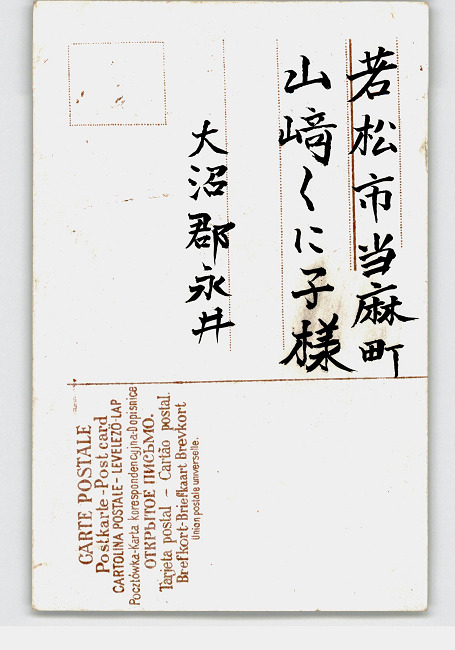 若松市当麻町
山﨑くに子様
大沼郡永井
CARTE POSTALE
Postkarte-Post card
CARTOLINA POSTALE-LEVELEZŐ-LAP
Pocztówka-Karta korespondencyjna-Dopisnice
ОТКРЫТОЕ ПИСЬМО.
Tarjeta postal - Cartão postal.
Brefkort-Briefkaart Brevkort
Union postale universelle.